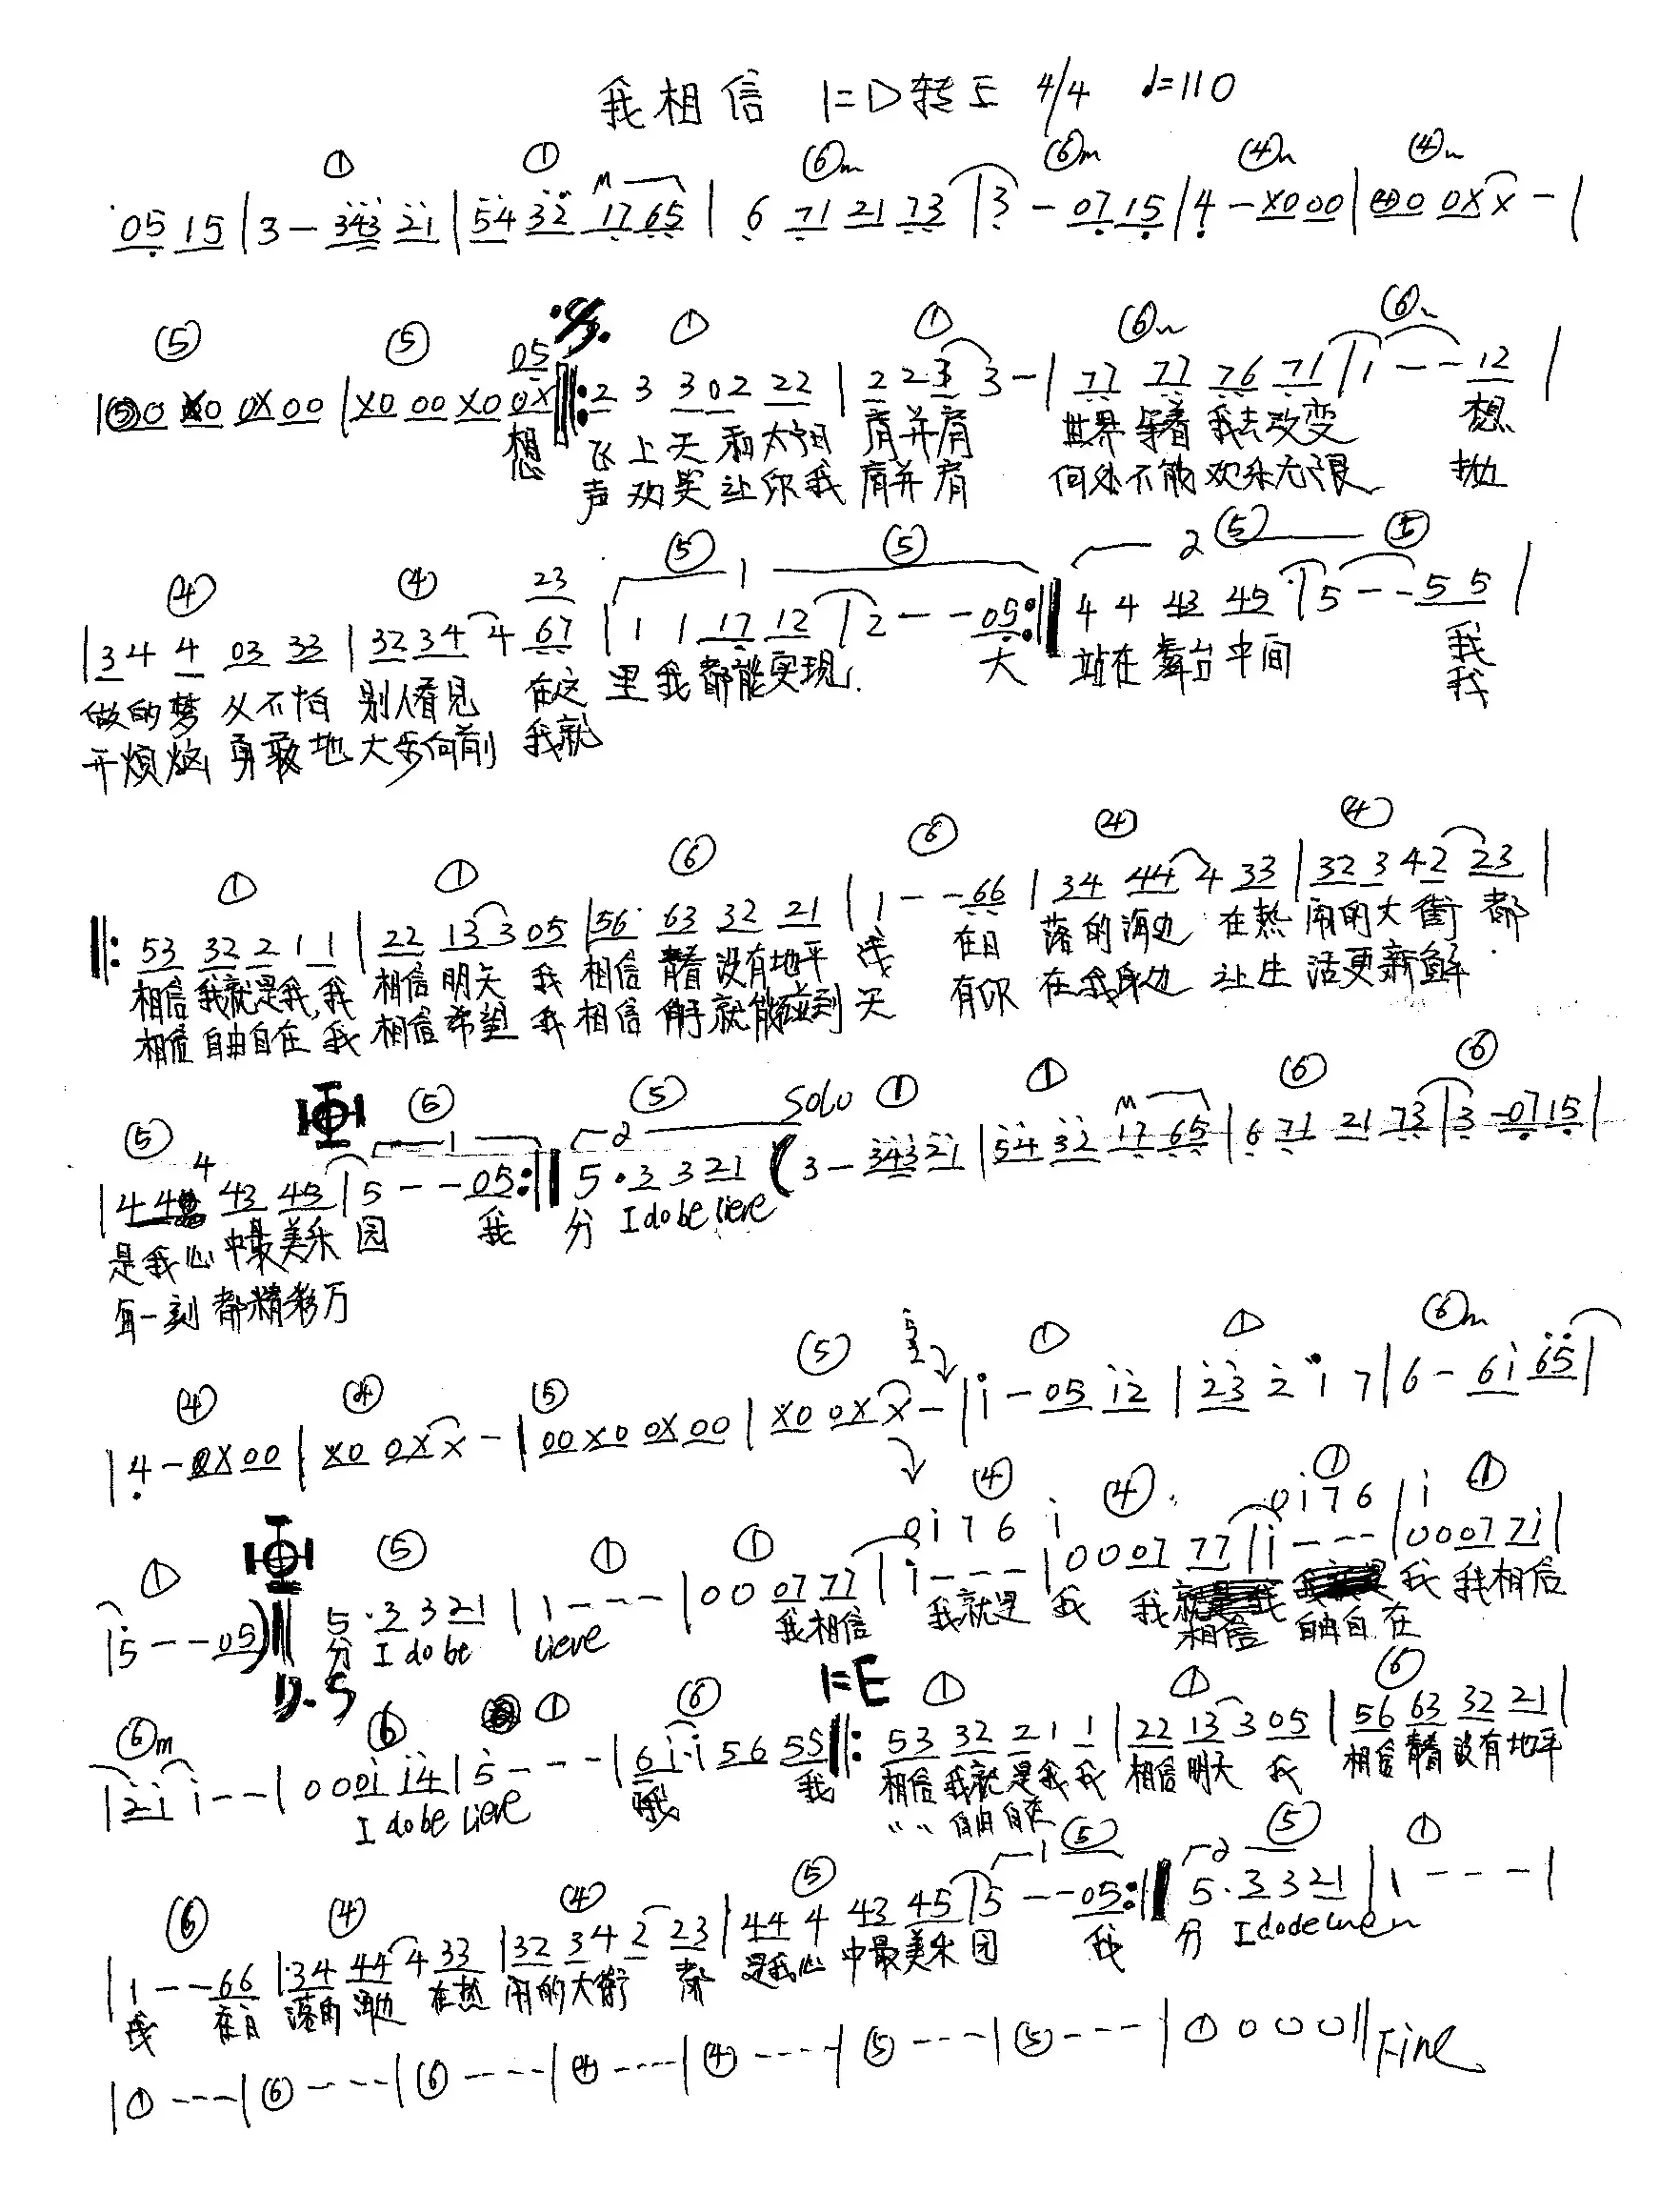 我相信 1=D转E 4/4 ♩=110
① ① ⑥m ⑥m ④ ④
05 15 | 3 - 343 21 | 54 32 17 65 | 6 71 21 73 | 3 - 07 15 | 4 - X0 00 | 00 0X X - |
⑤ ⑤ 05 ① ① ⑥ ⑥
00 X0 0X 00 | X0 00 X0 0X ‖: 2 3 3 02 22 | 2 2 3 3 - | 77 77 76 71 | 1 - - 12 |
想 飞上天和太阳 肩并肩 世界等着我去改变 想
声欢笑让你我肩并肩 何处不能欢乐无限 抛
④ ④ 23 ⑤ 1 ⑤ 2 ⑤ ⑤
| 3 4 4 03 33 | 32 34 4 67 | 1 1 17 12 | 2 - - 05 :‖ 4 4 43 45 | 5 - - 5 5 |
做的梦 从不怕 别人看见 在这 里我都能实现. 大 站在舞台中间 我
开烦恼 勇敢地大步向前 我就 我
① ① ⑥ ⑥ ④ ④
‖: 53 32 2 1 1 | 22 13 3 05 | 56 63 32 21 | 1 - - 66 | 34 44 4 33 | 32 3 4 2 23 |
相信我就是我,我 相信明天 我 相信青春没有地平 线 在日 落的海边 在热 闹的大街 都
相信自由自在 我 相信希望 我相信伸手就能碰到 天 有你 在我身边 让生 活更新鲜
⑤ 4 ⑤ 1 ⑤ 2 Solo ① ① ⑥ ⑥
| 44 43 45 | 5 - - 05 :‖ 5 · 3 3 21 ( 3 - 343 21 | 54 32 17 65 | 6 71 21 73 | 3 - 07 15 |
是我心中最美乐 园 我 分 I do be lieve
每一刻都精彩万
④ ④ ⑤ ⑤ ① ① ⑥m
| 4 - 0X 00 | X0 0X X - | 00 X0 0X 00 | X0 0X X - | i - 05 i2 | 23 2 i 7 | 6 - 6i 65 |
① ⑤ ① ① 0 i 7 6 ④ i ④ 0 i 7 6 ① i ①
| 5 - - 05 ) ‖ 5 · 3 3 21 | 1 - - - | 0 0 07 77 | i - - - | 0 0 07 77 | i - - - | 0 0 07 7i |
分 I do be lieve 我相信 我就是 我 我 我 我相信
相信 自由自在
D.S
⑥m ⑥ ① ⑥ 1=E ① ① ⑥
| 2i i - - | 0 0 0i i4 | 5 - - - | 6i i 56 55 ‖: 53 32 2 1 1 | 22 13 3 05 | 56 63 32 21 |
I do be lieve 我 相信我就是我我 相信明天 我 相信青春没有地平
〃〃 自由自在
⑥ ④ ④ ⑤ 1 ⑤ 2 ⑤ ①
| 1 - - 66 | 34 44 4 33 | 32 3 4 2 23 | 44 4 43 45 | 5 - - 05 :‖ 5 · 3 3 21 | 1 - - - |
线 在日 落的海边 在热 闹的大街 都 是我心中最美乐 园 我 分
| ① - - - | ⑥ - - - - | ⑥ - - - - | ④ - - - - | ④ - - - - | ⑤ - - - | ⑤ - - - - | ① 0 0 0 ‖ Fine